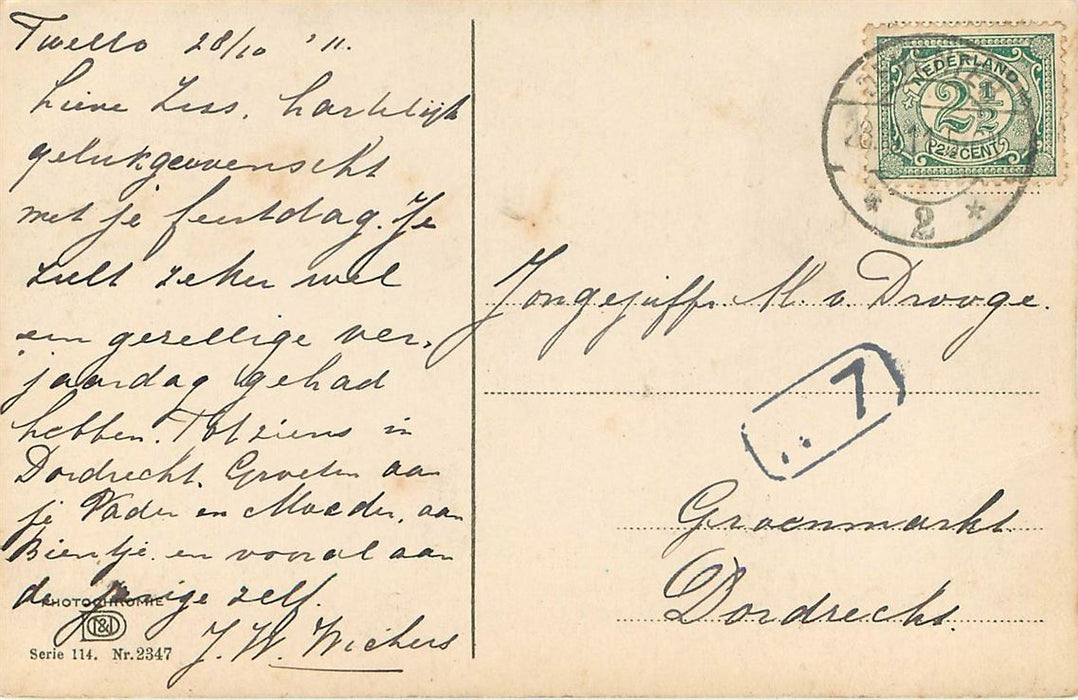 Twello 28/10 '11.
Lieve Zus, hartelijk
gelukgewenscht
met je feestdag. Je
zult zeker wel
een gezellige ver-
jaardag gehad
hebben. Tot ziens in
Dordrecht. Groeten aan
je Vader en Moeder, aan
Bientje en vooral aan
de jarige zelf.
J. W. Wichers
PHOTOCHROMIE
Serie 114. Nr. 2347
NEDERLAND
2½
2½ CENT
28.
2
Jongejuffr. M. v. Drooge.
7
Groenmarkt
Dordrecht.